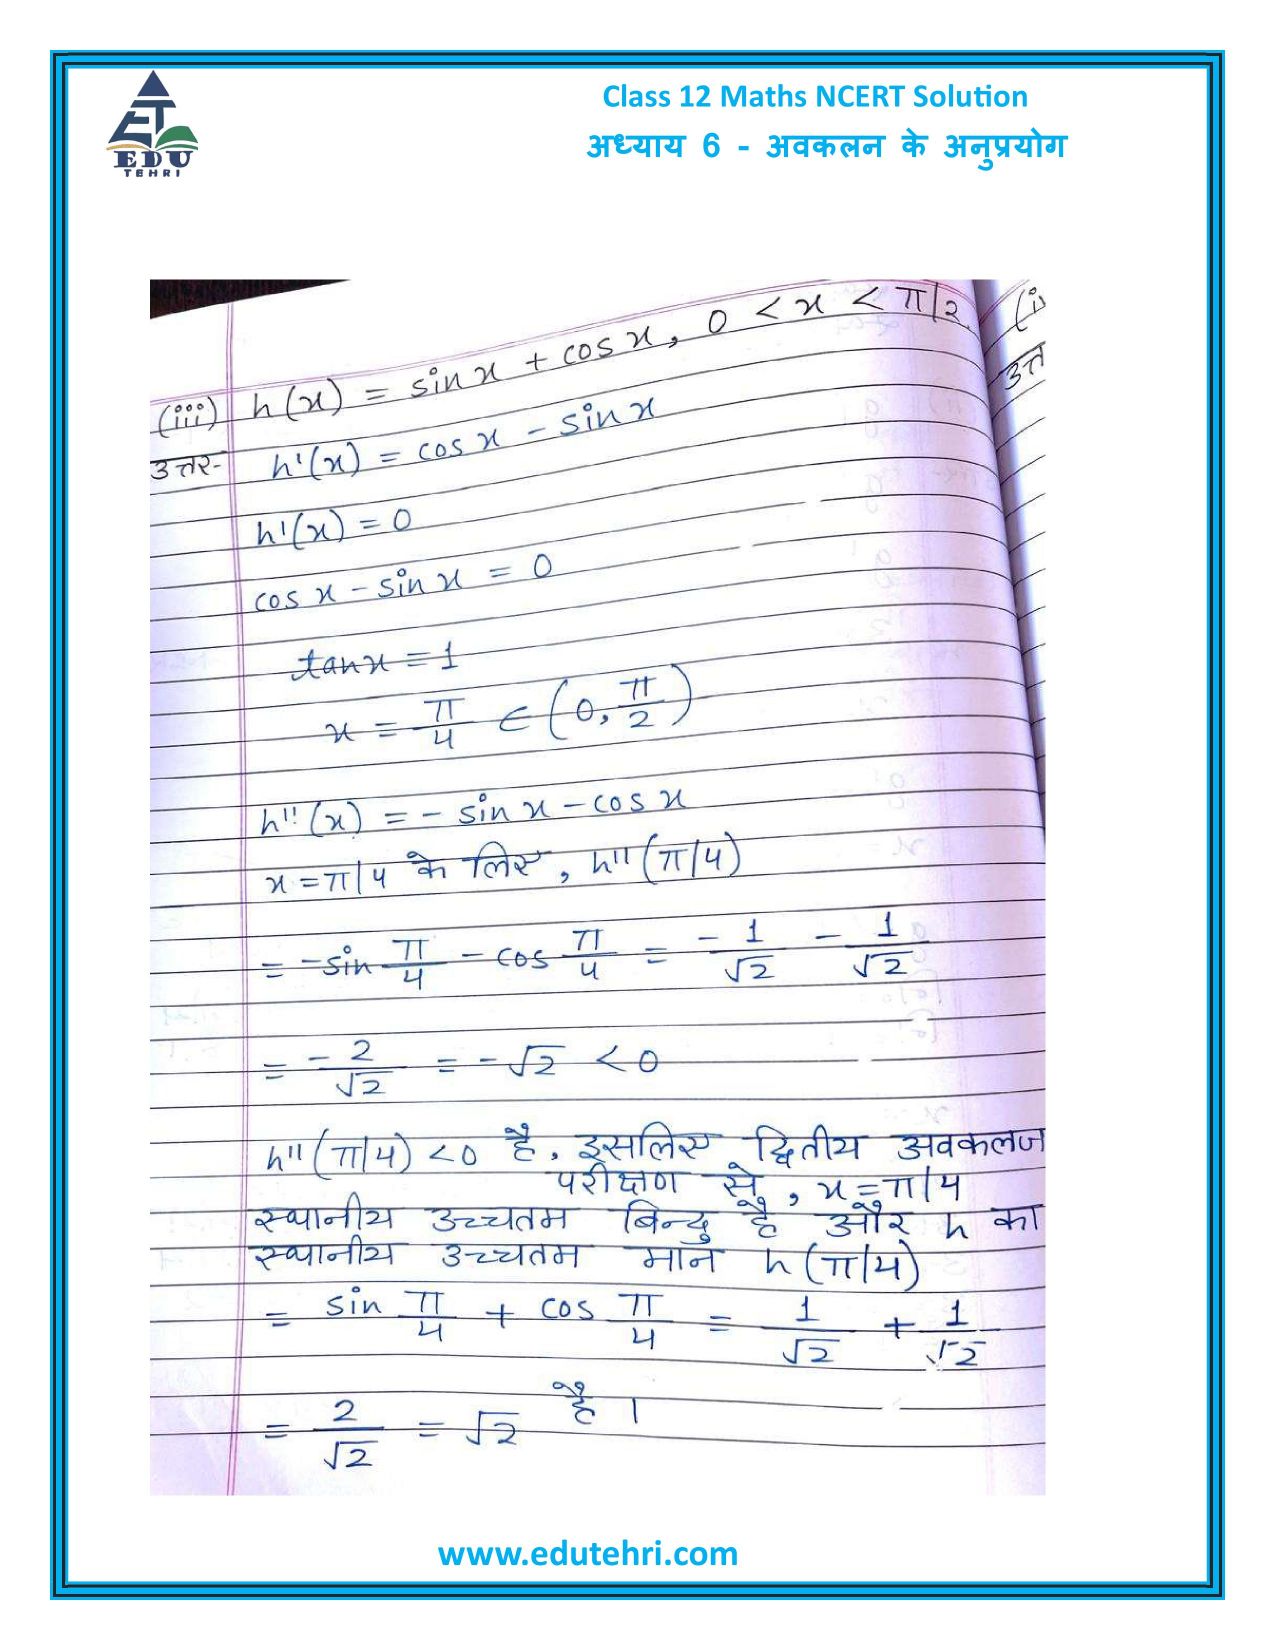 ET
EDU
TEHRI
Class 12 Maths NCERT Solution
अध्याय 6 - अवकलन के अनुप्रयोग
(iii) h(x) = sin x + cos x, 0 < x < π/2
उत्तर- h'(x) = cos x - sin x
h'(x) = 0
cos x - sin x = 0
tan x = 1
x = π/4 ∈ (0, π/2)
h''(x) = - sin x - cos x
x = π/4 के लिए, h''(π/4)
= -sin π/4 - cos π/4 = -1/√2 - 1/√2
= -2/√2 = -√2 < 0
h''(π/4) < 0 है, इसलिए द्वितीय अवकलज
परीक्षण से, x = π/4
स्थानीय उच्चतम बिन्दु है और h का
स्थानीय उच्चतम मान h(π/4)
= sin π/4 + cos π/4 = 1/√2 + 1/√2
= 2/√2 = √2 है ।
(i
उत्त
www.edutehri.com